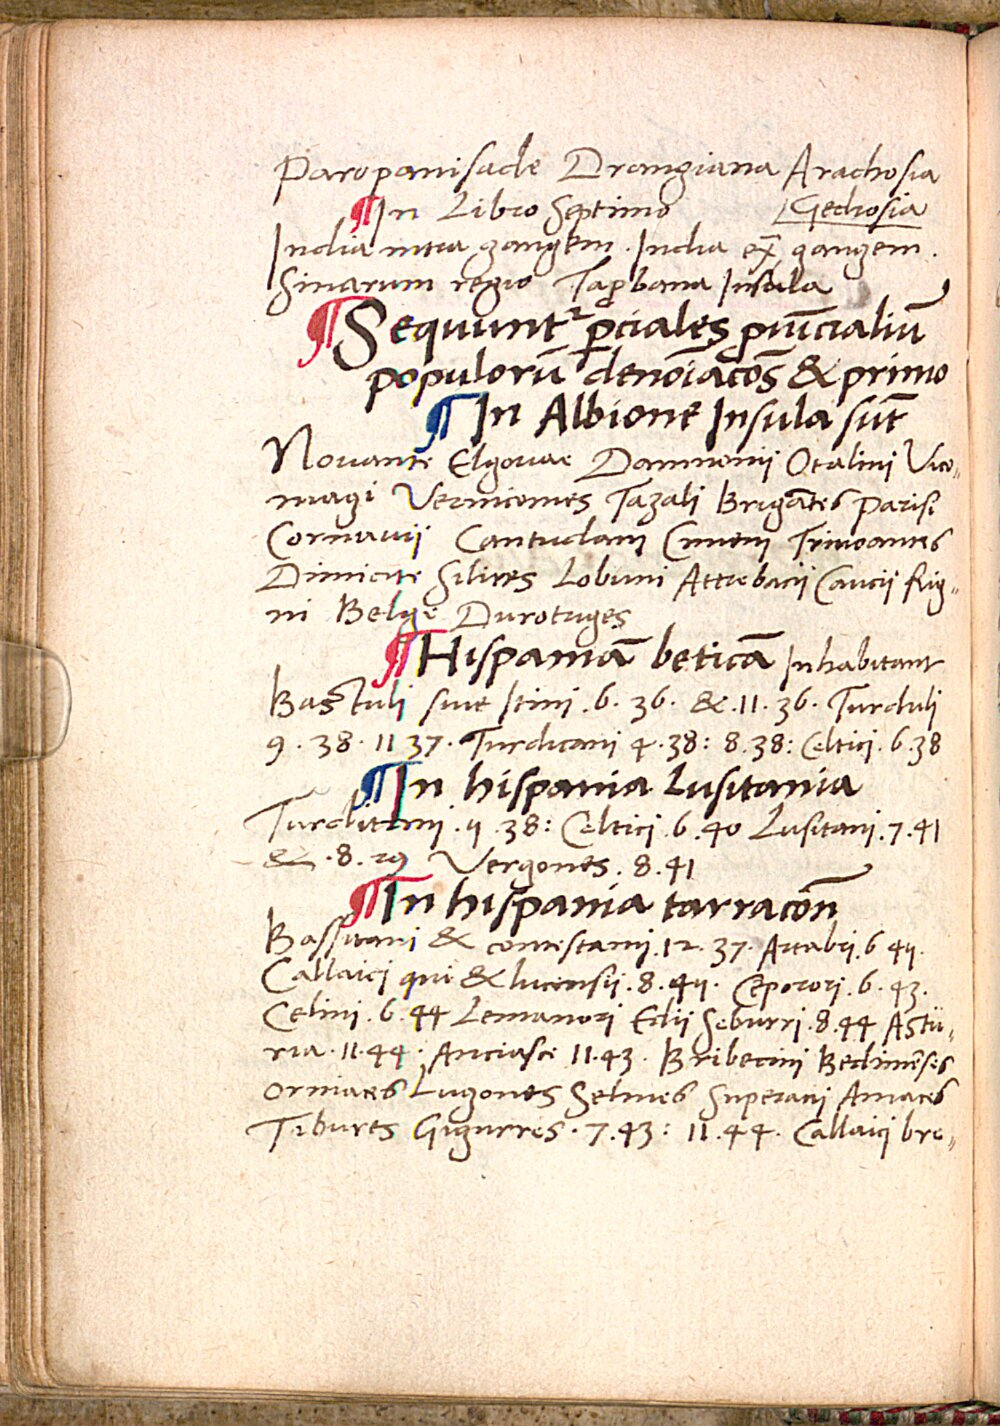 Paropanisade Drangiana Arachosia
¶ In Libro Septimo Gedrosia
India intra gangem . India ex̄ gangem .
Sinarum regio Taprobana Insula
¶ Sequunt² p̱ciales ꝓuīcialiū
populorū denoīacōs & primo
¶ In Albione Insula sūt
Novante Elgovae Damnonij Otalini Vico„
magi Vernicomes Tazali Brigātes Parisi
Cornavij Cantuclani Cimeni Trinoantes
Dimicite Silires Lobuni Attrebacij Caucij Rig„
ni Belge Durotriges
¶ Hispaniā beticā Inhabitant
Bastuli sive Itini . 6 . 36 . & . 11 . 36 . Turduli
9 . 38 . 11 37 . Turdicani 4 . 38 : 8 . 38 : Celtici . 6 . 38
¶ In hispania Lusitania
Turditani . 4 . 38 : Celtici . 6 . 40 Lusitani . 7 . 41
& . 8 . 29 Vergones . 8 . 41
¶ In hispania tarracōn
Bassitani & contestani . 12 . 37 . Artabri . 6 44 .
Callaici qui & lucensij . 8 . 44 . Ceporori . 6 . 43 .
Celini . 6 . 44 Lemanori Edij Seburri . 8 . 44 Astu„
ria . 11 . 44 . Anciasce 11 . 43 . Bribecini Bedunēses
orniaces Lugones Selines Superacij Amaces
Tibures Gigurres . 7 . 43 : 11 . 44 . Callaici bre„